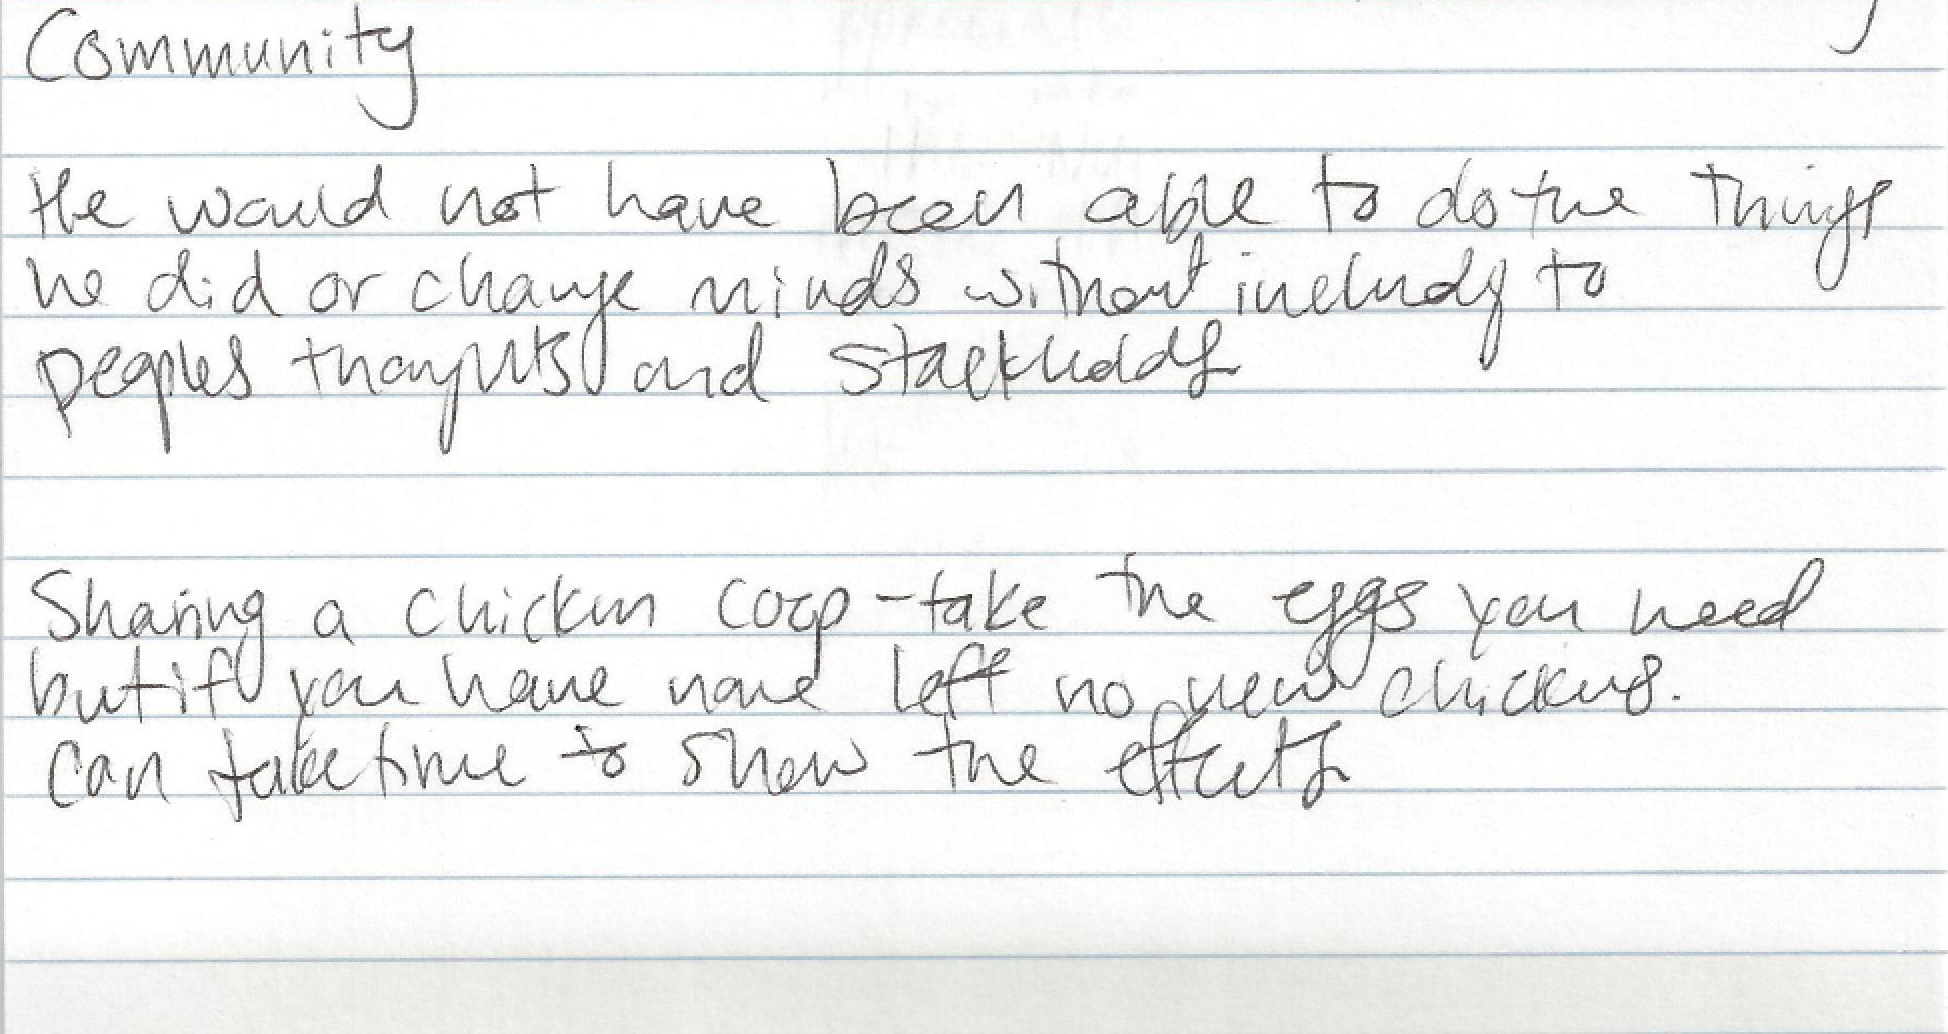 Community
He would not have been able to do the things
he did or change minds without includg to
peoples thoughts and
Sharing a chicken coop - take the eggs you need
but if you have none left no new chickens.
Can take time to show the effects